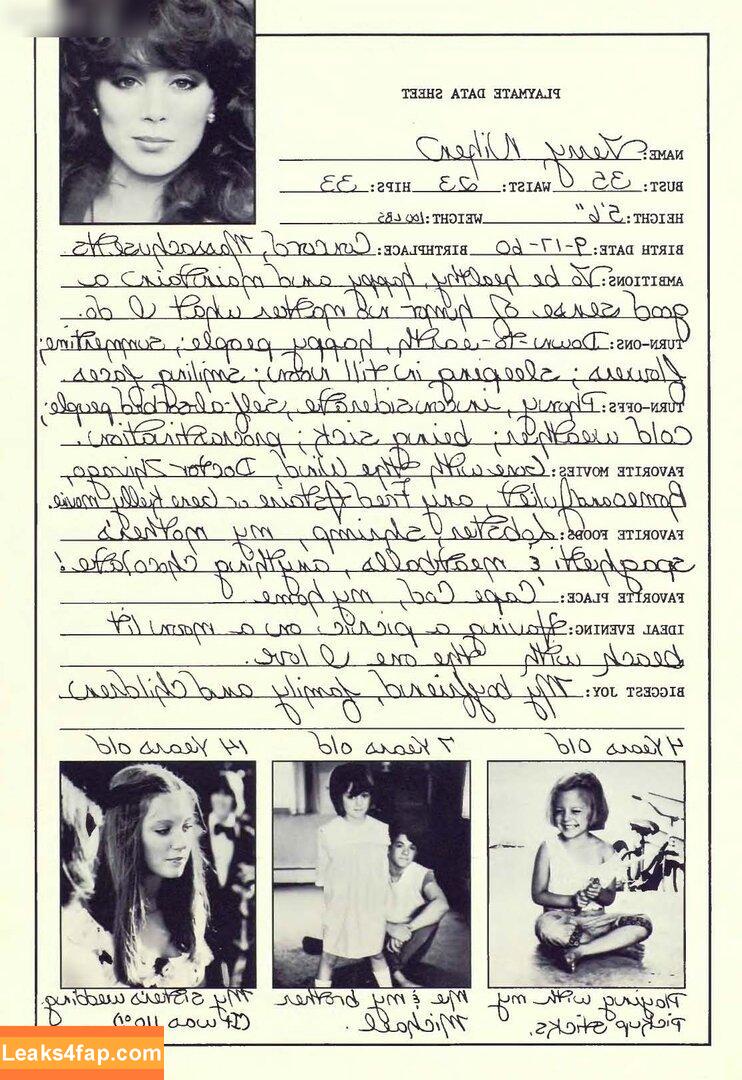 PLAYMATE DATA SHEET
NAME: Terry Nihen
BUST: 35 WAIST: 23 HIPS: 33
HEIGHT: 5'6" WEIGHT: 100 LBS
BIRTH DATE: 9-17-60 BIRTHPLACE: Concord, Massachusetts
AMBITIONS: To be healthy, happy and maintain a
good sense of humor no matter what I do.
TURN-ONS: Down-to-earth, happy people; summertime;
flowers; sleeping in till noon; smiling faces
TURN-OFFS: Phony, inconsiderate, self-absorbed people;
cold weather; being sick; procrastination.
FAVORITE MOVIES: Gone with the Wind, Doctor Zhivago,
Romeo and Juliet, any Fred Astaire or Gene Kelly movie.
FAVORITE FOODS: Lobster, shrimp, my mother's
spaghetti & meatballs, anything chocolate!
FAVORITE PLACE: Cape Cod, my home
IDEAL EVENING: Having a picnic on a moonlit
beach with the one I love.
BIGGEST JOY: My boyfriend, family and children
4 Years old
7 Years old
14 Years old
Playing with my
pickup sticks.
Me & my brother
Michael.
My sister's wedding
(It was 110°!)
Leaks4fap.com